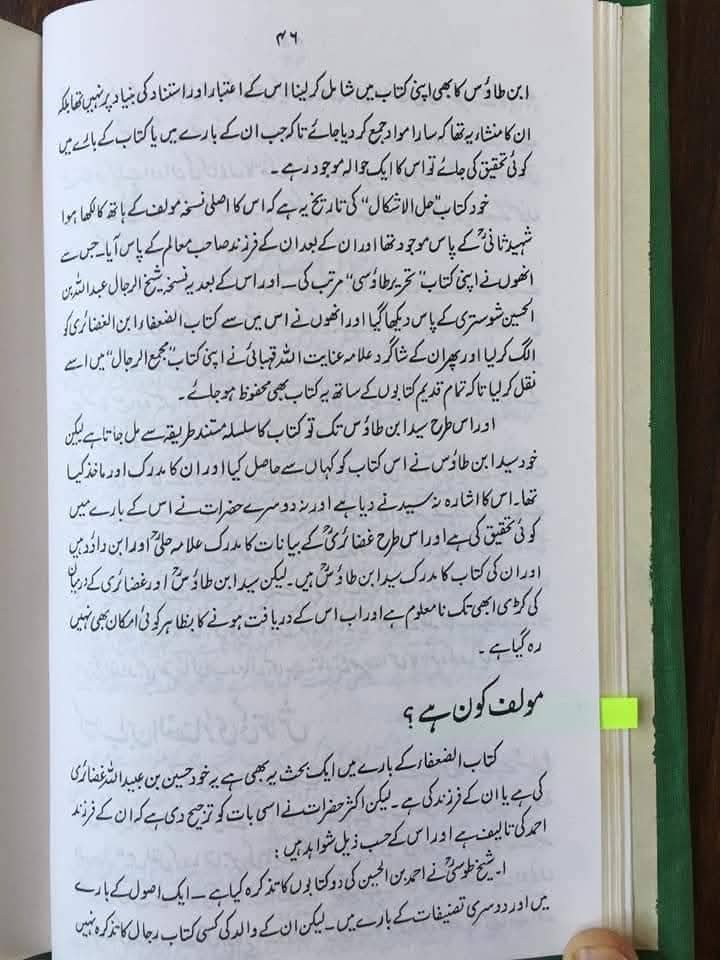 ۴۶
ابن طاؤس کا بھی اپنی کتاب میں شامل کرلینا اس کے اعتبار اور استناد کی بنیاد پر نہیں تھا بلکہ
ان کا منشاء یہ تھا کہ سارا مواد جمع کر دیا جائے تاکہ جب ان کے بارے میں یا کتاب کے بارے میں
کوئی تحقیق کی جائے تو اس کا ایک حوالہ موجود رہے ۔
خود کتاب "حل الاشکال" کی تاریخ یہ ہے کہ اس کا اصلی نسخہ مولف کے ہاتھ کا لکھا ہوا
شہید ثانیؒ کے پاس موجود تھا اور ان کے بعد ان کے فرزند صاحب معالم کے پاس آیا۔ جس سے
انھوں نے اپنی کتاب "تحریر طاؤسی" مرتب کی ۔ اور اس کے بعد یہ نسخہ شیخ الرجال عبداللہ بن
الحسین شوستری کے پاس دیکھا گیا اور انھوں نے اس میں سے کتاب الضعفاء ابن الغضائری کو
الگ کرلیا اور پھر ان کے شاگرد علامہ عنایت اللہ قہپائی نے اپنی کتاب "مجمع الرجال" میں اسے
نقل کرلیا تاکہ تمام قدیم کتابوں کے ساتھ یہ کتاب بھی محفوظ ہوجائے ۔
اور اس طرح سید ابن طاؤس تک تو کتاب کا سلسلہ مستند طریقہ سے مل جاتا ہے لیکن
خود سید ابن طاؤس نے اس کتاب کو کہاں سے حاصل کیا اور ان کا مدرک اور ماخذ کیا
تھا۔ اس کا اشارہ نہ سید نے دیا ہے اور نہ دوسرے حضرات نے اس کے بارے میں
کوئی تحقیق کی ہے اور اس طرح غضائریؒ کے بیانات کا مدرک علامہ حلیؒ اور ابن داؤد ہیں
اور ان کی کتاب کا مدرک سید ابن طاؤسؒ ہیں۔ لیکن سید ابن طاؤسؒ اور غضائری کے درمیان
کی کڑی ابھی تک نامعلوم ہے اور اب اس کے دریافت ہونے کا بظاہر کوئی امکان بھی نہیں
رہ گیا ہے ۔
مولف کون ہے ؟
کتاب الضعفاء کے بارے میں ایک بحث یہ بھی ہے یہ خود حسین بن عبیداللہ غضائری
کی ہے یا ان کے فرزند کی ہے ۔ لیکن اکثر حضرات نے اسی بات کو ترجیح دی ہے کہ ان کے فرزند
احمد کی تالیف ہے اور اس کے حسب ذیل شواہد ہیں :
۱۔ شیخ طوسیؒ نے احمد بن الحسین کی دو کتابوں کا تذکرہ کیا ہے ۔ ایک اصول کے بارے
میں اور دوسری تصنیفات کے بارے میں ۔ لیکن ان کے والد کی کسی کتاب رجال کا تذکرہ نہیں